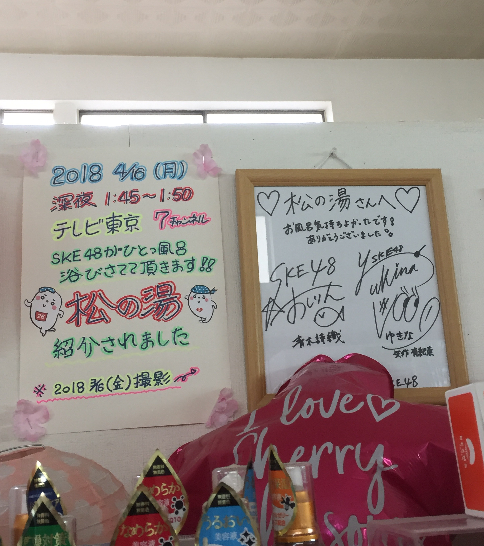 2018 4/16 (月)
深夜 1:45〜1:50
テレビ東京 7チャンネル
SKE48がひとっ風呂
浴びさせて頂きます!!
松の湯
紹介されました
※2018 3/16(金)撮影
♡松の湯さんへ♡
お風呂気持ちよかったです!
ありがとうございました。
SKE48
SKE48
Yukina
ゆきな
SKE48
I love♡
Cherry
なめらか
美容液
なめらか
うるおう
美容液